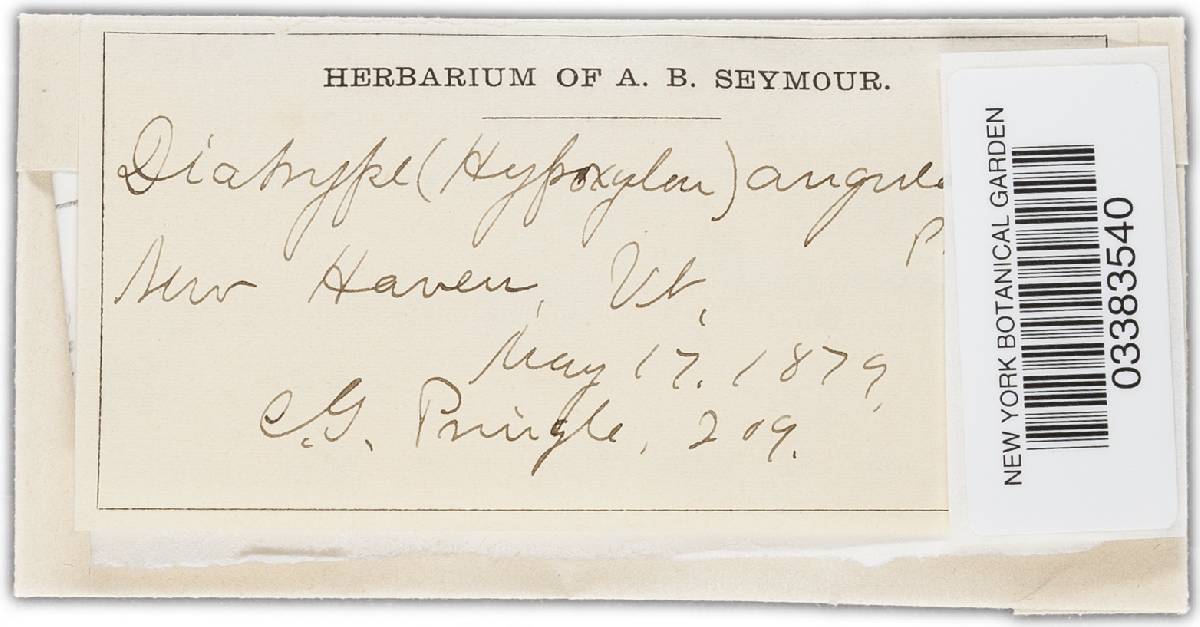 HERBARIUM OF A. B. SEYMOUR.
Diatrype (Hypoxylon)
P.
New Haven, Vt,
May 17. 1879,
C.G. Pringle, 209.
NEW YORK BOTANICAL GARDEN
03383540